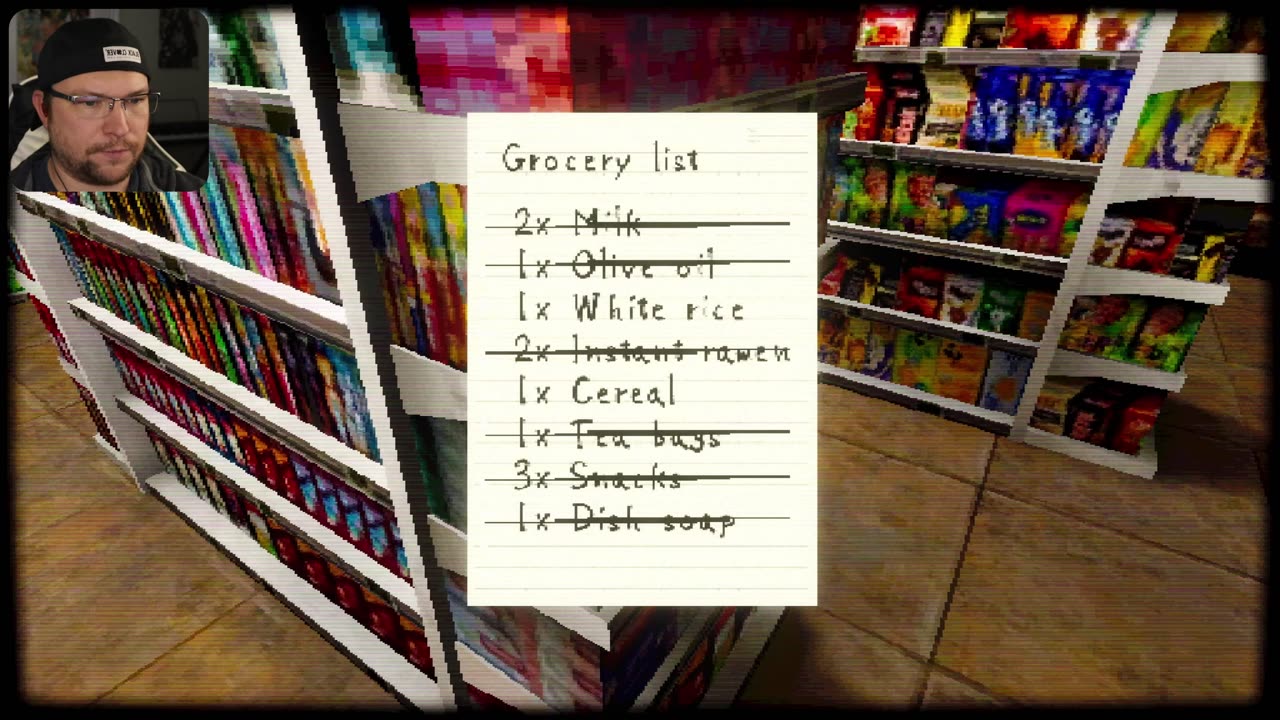 Grocery list
2x Milk
1x Olive oil
1x White rice
2x Instant ramen
1x Cereal
1x Tea bags
3x Snacks
1x Dish soap